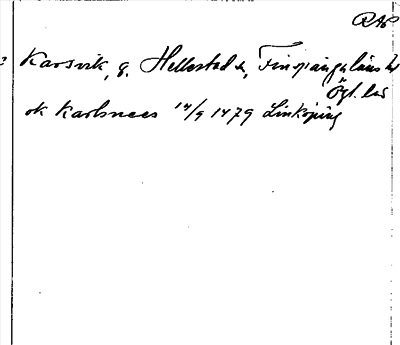 RAP
Karsvik, g. Hellestad s, Finspångaläns hd
Ögl. län
ok Karlsnees 14/9 1479 Linköping